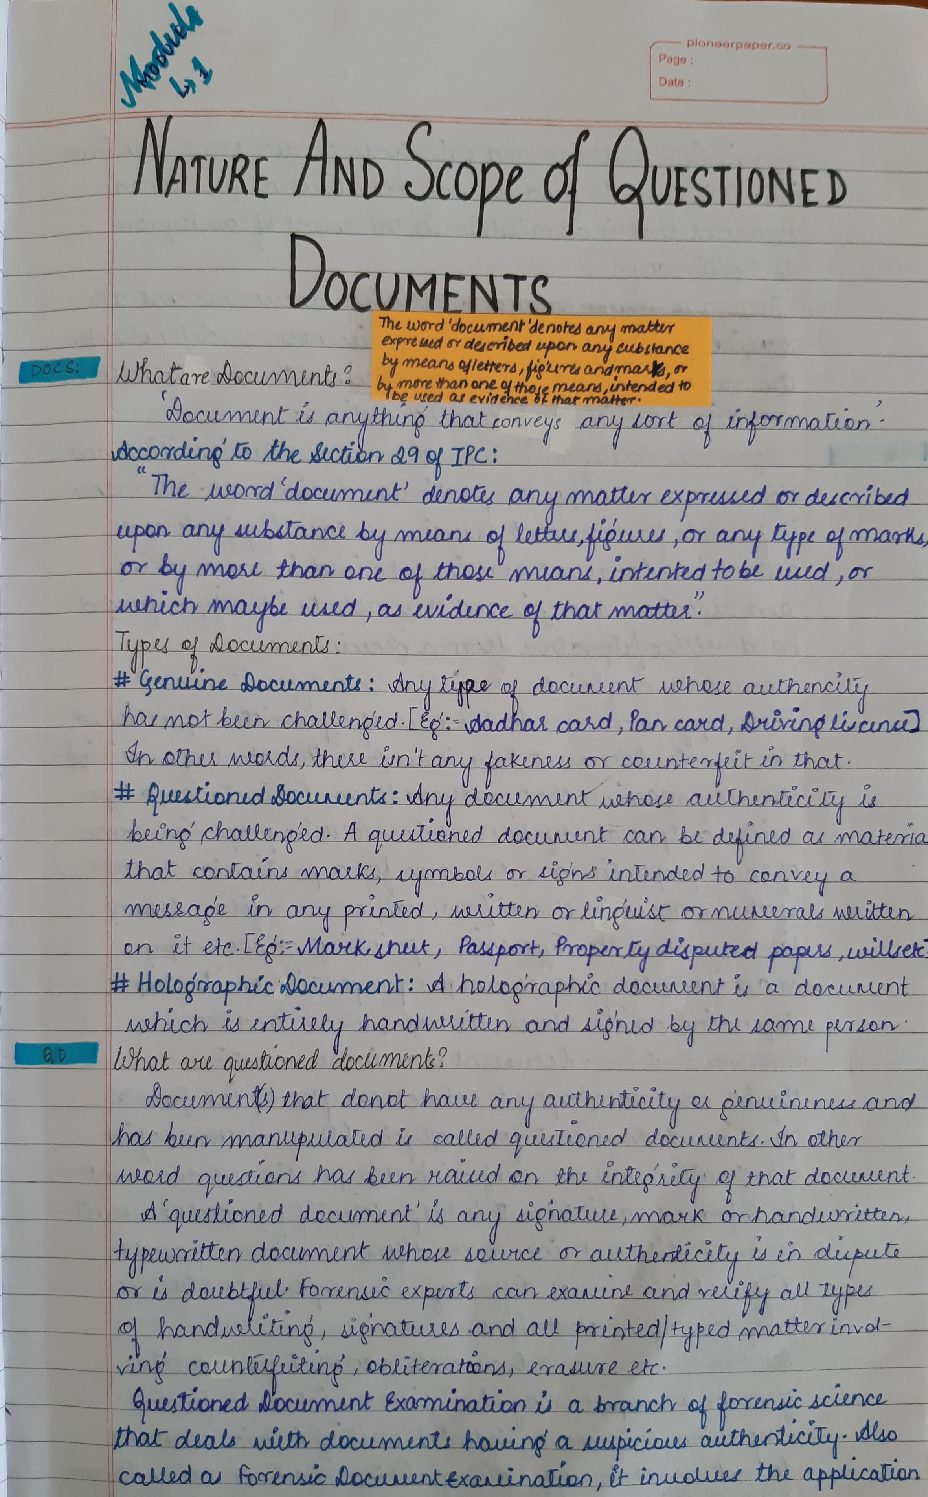 Module
↳ 1
pioneerpaper.co
Page :
Date :
NATURE AND Scope of QUESTIONED
DOCUMENTS
The word 'document' denotes any matter
expressed or described upon any substance
by means of letters, figures and marks, or
by more than one of those means, intended to
be used as evidence of that matter.
DOCS:
What are Documents?
'Document is anything that conveys any sort of information'.
According to the Section 29 of IPC:
"The word 'document' denotes any matter expressed or described
upon any substance by means of letters, figures, or any type of marks,
or by more than one of those means, intented to be used, or
which maybe used, as evidence of that matter".
Types of Documents:
# Genuine Documents: Any type of document whose authencity
has not been challenged. [Eg:- Aadhar card, Pan card, Driving licence]
In other words, there isn't any fakeness or counterfeit in that.
# Questioned Documents: Any document whose authenticity is
being challenged. A questioned document can be defined as materia
that contains marks, symbols or signs intended to convey a
message in any printed, written or linguist or numerals written
on it etc. [Eg:- Mark sheet, Passport, Property disputed papers, wills etc.
# Holographic Document: A holographic document is a document
which is entirely handwritten and signed by the same person.
QD
What are questioned documents?
Document(s) that donot have any authenticity or genuineness and
has been manupulated is called questioned documents. In other
word questions has been raised on the integrity of that document.
A 'questioned document' is any signature, mark or handwritten,
typewritten document whose source or authenticity is in dispute
or is doubtful. Forensic experts can examine and verify all types
of handwriting, signatures and all printed/typed matter invol-
ving counterfeiting, obliterations, erasure etc.
Questioned Document Examination is a branch of forensic science
that deals with documents having a suspicious authenticity. Also
called as Forensic Document Examination, it involves the application